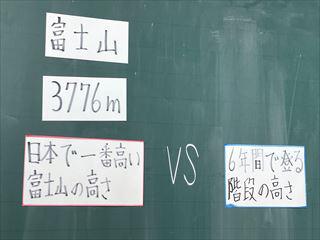 富士山
3776m
日本で一番高い
富士山の高さ
VS
6年間で登る
階段の高さ